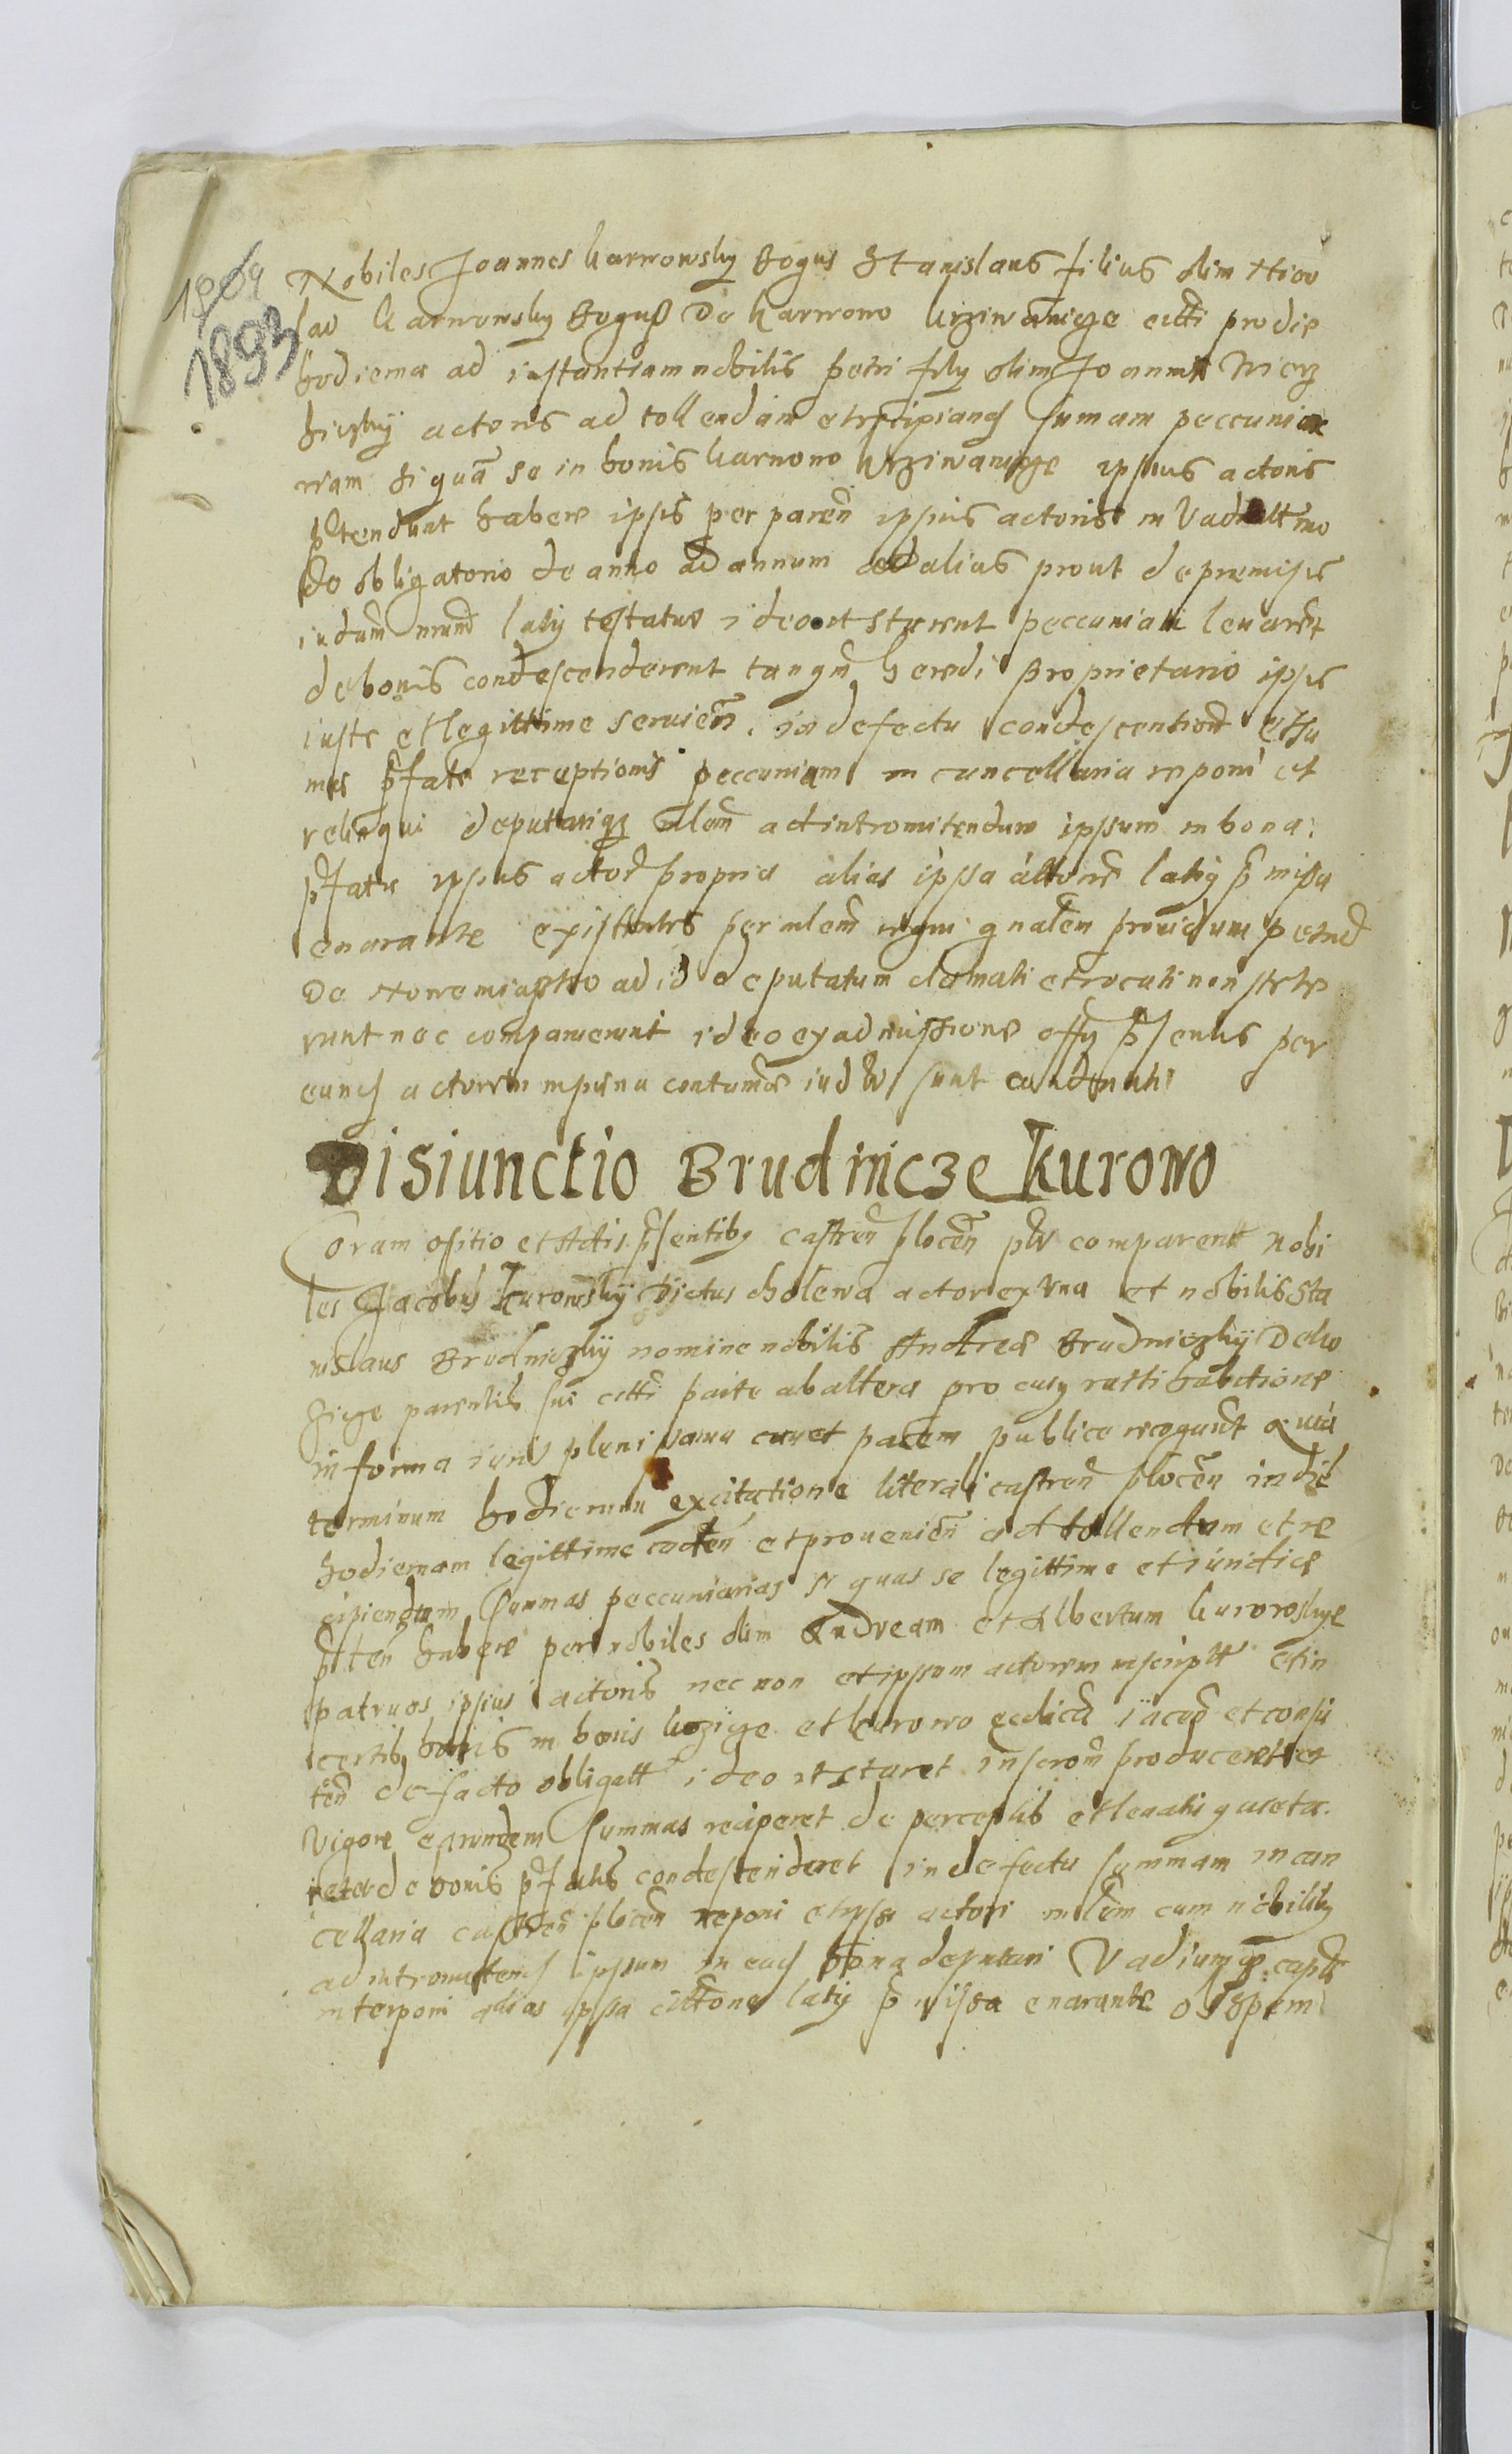 1804
1893
Nobiles Joannes karnowsky Bogus Stanislaus filius olim
lai karnowsky Boguß de karnowo krziwanicze citti pro die
hodierna ad instantiam nobilis petri fily olim Joannis Wierz
biczky actoris ad tollendam et recipiand sumam peccunia
riam si quã se in bonis karnowo krziwanicze ipsius actoris
p̃tendunt habere ipsis per paren̄ ipsius actoris in vad
do obligatorio de anno ad annum ad alias prout de premissis
iudum mund laty testatur ideo ut starent peccuniam levarent
de bonis condescenderent tanqm̃ heredi Proprietario ipsis
iuste et legittime servien̄. in defectu condescention̄ et su
mes p̃fate receptionis peccuniam in cancellaria reponi et
relinqui deputariqz m̃lem ad intromitendum ipsum in bona
p̃fata ipsius actor̄ propria alias ipsa actione laty p̃missa
enarante existentes per m̃lem regni gnalem providum petrũ
De Nowemiasto ad id deputatum clamati et vocati non stete
runt nec comparuerunt ideo ex admissione offy p̃sentis per
eund actorem in pena contumãe iudtr sunt condemnati
Disiunctio Brudnicze Kurowo
Coram offitio et Actis p̃sentiby castren̄ plocen̄ plr comparentt nobi
les Jacobus kurowsky dictus cholewa actor ex una et nobilis Sta
nislaus Brudniczky nomine nobilis Andreae Brudniczky De ko
zicze parentis sui citti parte ab altera pro cuiy rattihabitione
in forma iuris pleni cavet parem publice recognt Quia
terminum hodiernum ex citatione literali castren̄ plocen̄ in diē
hodiernam legittime caden̄ et provenien̄ ad tollendum et re
cipiendum summas peccuniarias si quas se legittime et iuridice
p̃ten̄ habere per nobiles olim Andream et Albertum kurowskye
patruos ipsius actoris nec non et ipsum actorem inscriptt et in
certiby bonis in bonis kozicze et kurowo iacen̄ et consis
ten̄ de facto obligatt ideo ut staret inscron̄ produceret et
vigore earundem summas reciperet de perceptis et levatis quieta
ret et de bonis p̃fatis condescenderet in defectu summam in can
cellaria castren̄ plocen̄ reponi et ipsi actori m̃lem cum nobiliby
ad intromittend ipsum in ead bona deputari Vadiumqz
interponi alias ipsa citatione laty p̃missa enarante